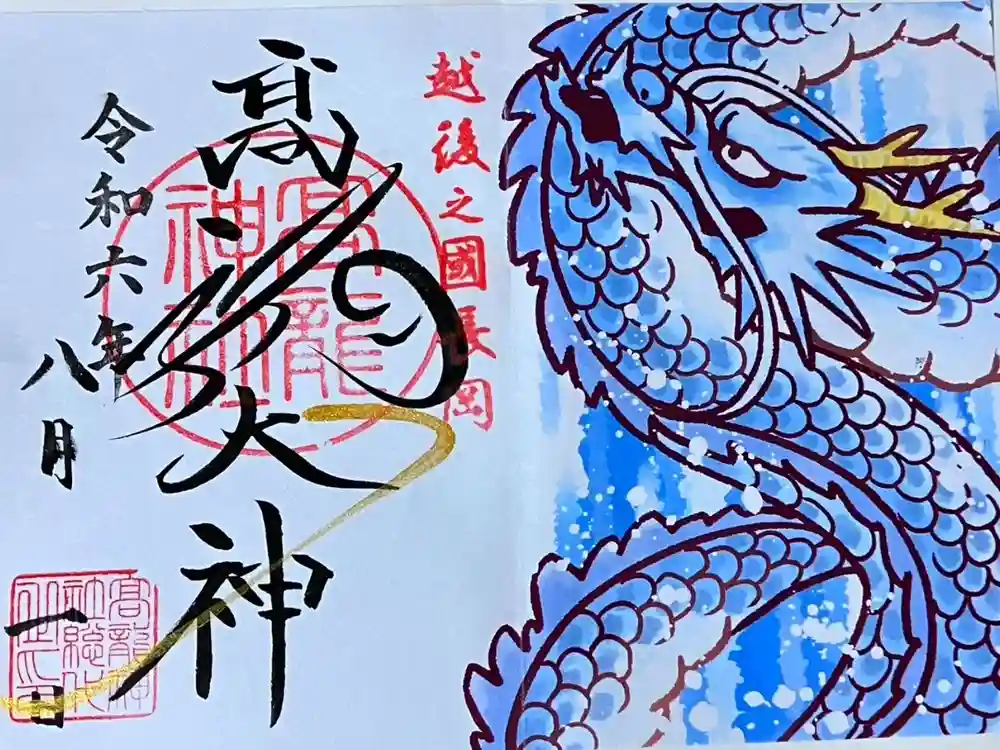 越後之國長岡
高龍大神
高龍
神社
令和六年
八月
一日
高龍神
社総代
之印